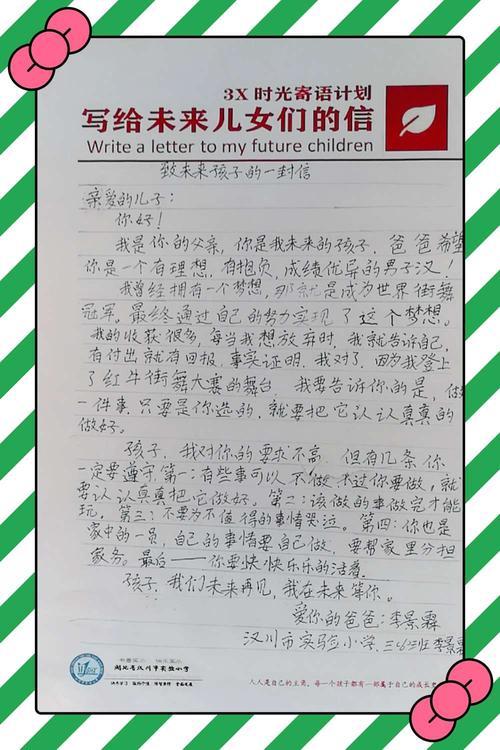 3X 时光寄语计划
写给未来儿女们的信
Write a letter to my future children
致未来孩子的一封信
亲爱的儿子：
你好！
我是你的父亲，你是我未来的孩子，爸爸希望
你是一个有理想，有抱负，成绩优异的男子汉！
我曾经拥有一个梦想，那就是成为世界街舞
冠军。最终通过自己的努力实现了这个梦想。
我的收获很多，每当我想放弃时，我就告诉自己，
有付出就有回报，事实证明，我对了，因为我登上
了红牛街舞大赛的舞台，我要告诉你的是，做
一件事，只要是你选的，就要把它认认真真的
做好。
孩子，我对你的要求不高，但有几条你
一定要遵守，第一：有些事可以不做，不过你要做，就
要认认真真把它做好。第二：该做的事做完才能
玩。第三：不要为不值得的事情哭泣。第四：你也是
家中的一员，自己的事情要自己做，要帮家里分担
家务。最后——你要快快乐乐的活着。
孩子，我们未来再见，我在未来等你。
爱你的爸爸：李景霖
汉川市实验小学，三（6）班李景霖
湖北省汉川市实验小学
人人是自己的主角，每一个孩子都有一部属于自己的成长